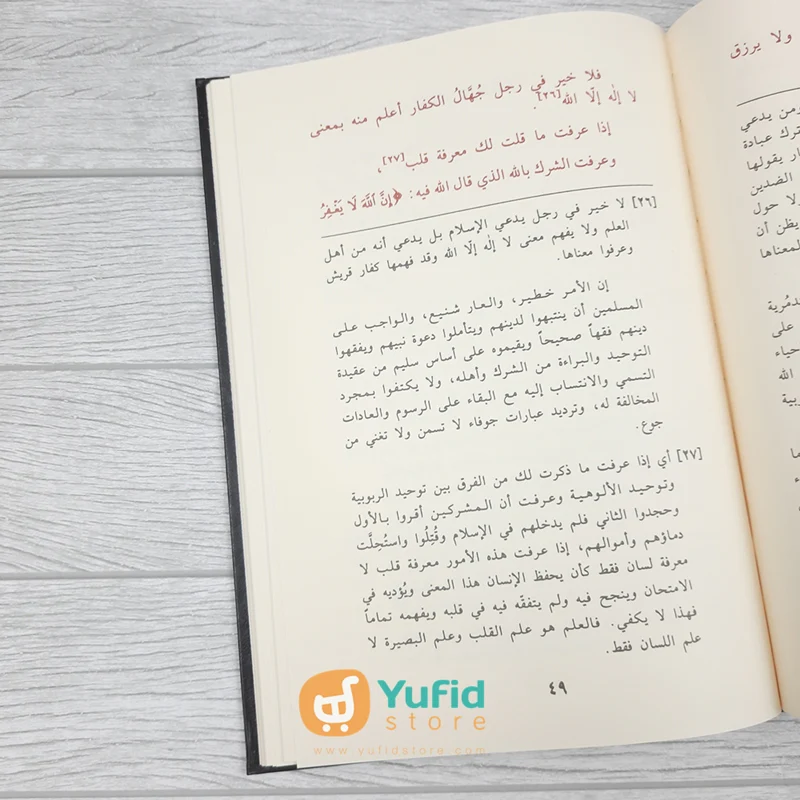 فلا خير في رجل جُهَّالُ الكفار أعلم منه بمعنى
لا إلٰه إلّا الله[٢٦].
إذا عرفت ما قلت لك معرفة قلب[٢٧]،
وعرفت الشرك بالله الذي قال الله فيه: ﴿إِنَّ ٱللَّهَ لَا يَغْفِرُ
[٢٦] لا خير في رجل يدعي الإسلام بل يدعي أنه من أهل
العلم ولا يفهم معنى لا إلٰه إلّا الله وقد فهمها كفار قريش
وعرفوا معناها.
إن الأمر خطير، والعار شنيع، والواجب على
المسلمين أن ينتبهوا لدينهم ويتأملوا دعوة نبيهم ويفقهوا
دينهم فقهاً صحيحاً ويقيموه على أساس سليم من عقيدة
التوحيد والبراءة من الشرك وأهله، ولا يكتفوا بمجرد
التسمي والانتساب إليه مع البقاء على الرسوم والعادات
المخالفة له، وترديد عبارات جوفاء لا تسمن ولا تغني من
جوع.
[٢٧] أي إذا عرفت ما ذكرت لك من الفرق بين توحيد الربوبية
وتوحيد الألوهية وعرفت أن المشركين أقروا بالأول
وجحدوا الثاني فلم يدخلهم في الإسلام وقُتِلُوا واستُحلَّت
دماؤهم وأموالهم، إذا عرفت هذه الأمور معرفة قلب لا
معرفة لسان فقط كأن يحفظ الإنسان هذا المعنى ويُؤديه في
الامتحان وينجح فيه ولم يتفقّه فيه في قلبه ويفهمه تماماً
فهذا لا يكفي. فالعلم هو علم القلب وعلم البصيرة لا
علم اللسان فقط.
٤٩
ولا يرزق
من يدعي
ترك عبادة
يقولها
الضدين
لا حول
يظن أن
لمعناها
على
الله
Yufid
store
www.yufidstore.com